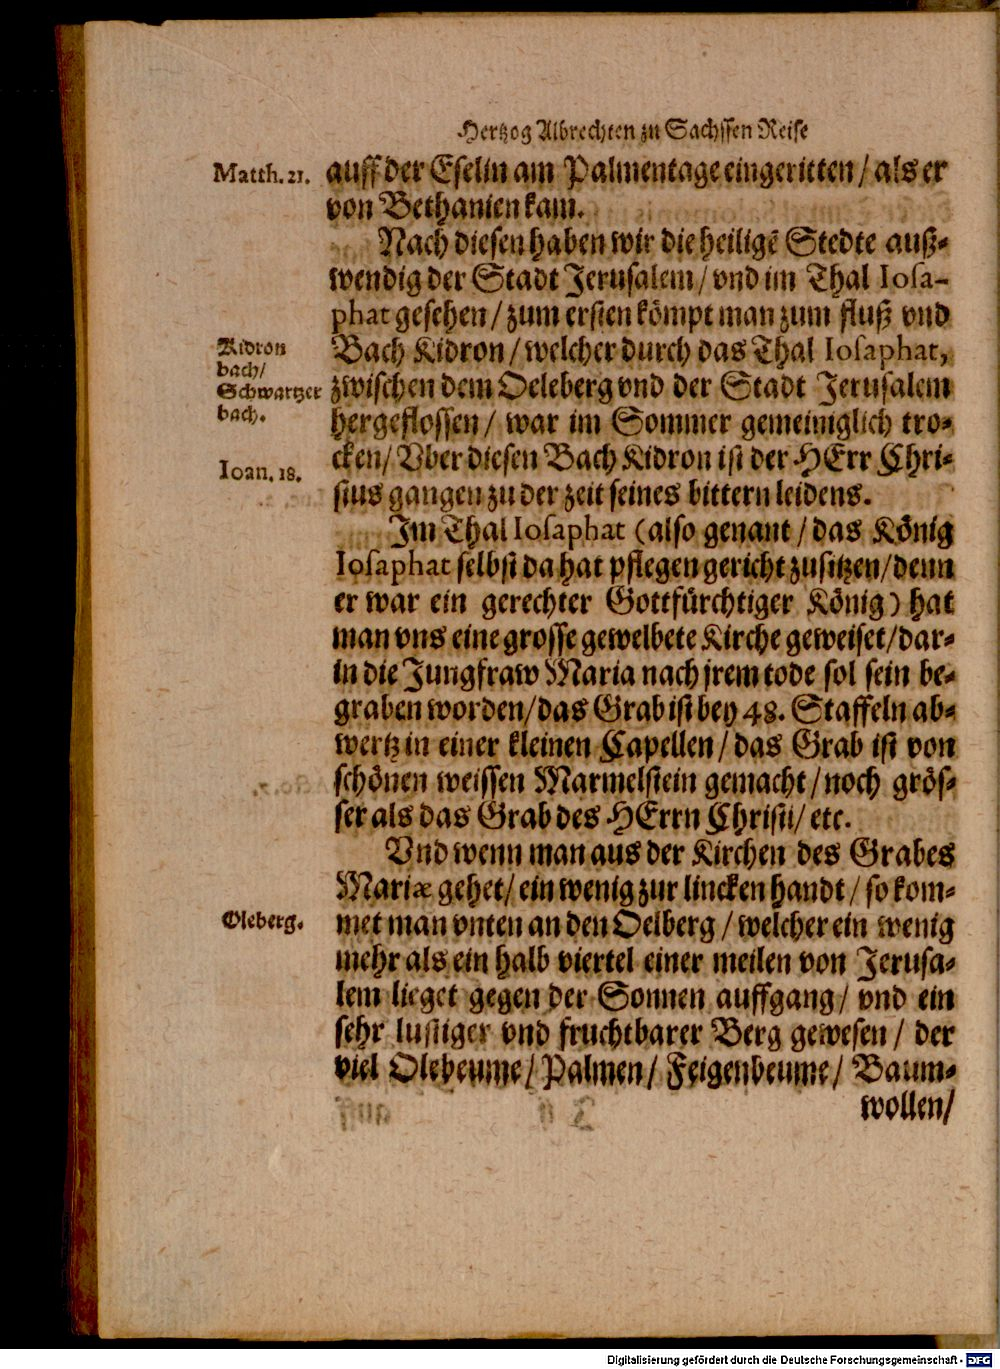 Hertzog Albrechten zu Sachssen Reise
Matth. 21.
auff der Eselin am Palmentage eingeritten / als er
von Bethanien kam.
Nach diesen haben wir die heiligẽ Stedte auß-
wendig der Stadt Jerusalem / vnd im Thal Iosa-
phat gesehen / zum ersten kömpt man zum fluß vnd
Kidron
bach/
Schwartzer
bach.
Bach Kidron / welcher durch das Thal Iosaphat,
zwischen dem Oeleberg vnd der Stadt Jerusalem
hergeflossen / war im Sommer gemeiniglich tro-
Ioan. 18.
cken / Vber diesen Bach Kidron ist der HErr Chri-
stus gangen zu der zeit seines bittern leidens.
Im Thal Iosaphat (also genant / das König
Iosaphat selbst da hat pflegen gericht zusitzen / denn
er war ein gerechter Gottfürchtiger König) hat
man vns eine grosse gewelbete Kirche geweiset / dar-
in die Jungfraw Maria nach jrem tode sol sein be-
graben worden / das Grab ist bey 48. Staffeln ab-
wertz in einer kleinen Capellen / das Grab ist von
schönen weissen Marmelstein gemacht / noch grös-
ser als das Grab des HErrn Christi / etc.
Vnd wenn man aus der Kirchen des Grabes
Mariæ gehet / ein wenig zur lincken handt / so kom-
Oleberg.
met man vnten an den Oelberg / welcher ein wenig
mehr als ein halb viertel einer meilen von Jerusa-
lem lieget gegen der Sonnen auffgang / vnd ein
sehr lustiger vnd fruchtbarer Berg gewesen / der
viel Olebeume / Palmen / Feigenbeume / Baum-
wollen /
Digitalisierung gefördert durch die Deutsche Forschungsgemeinschaft - DFG